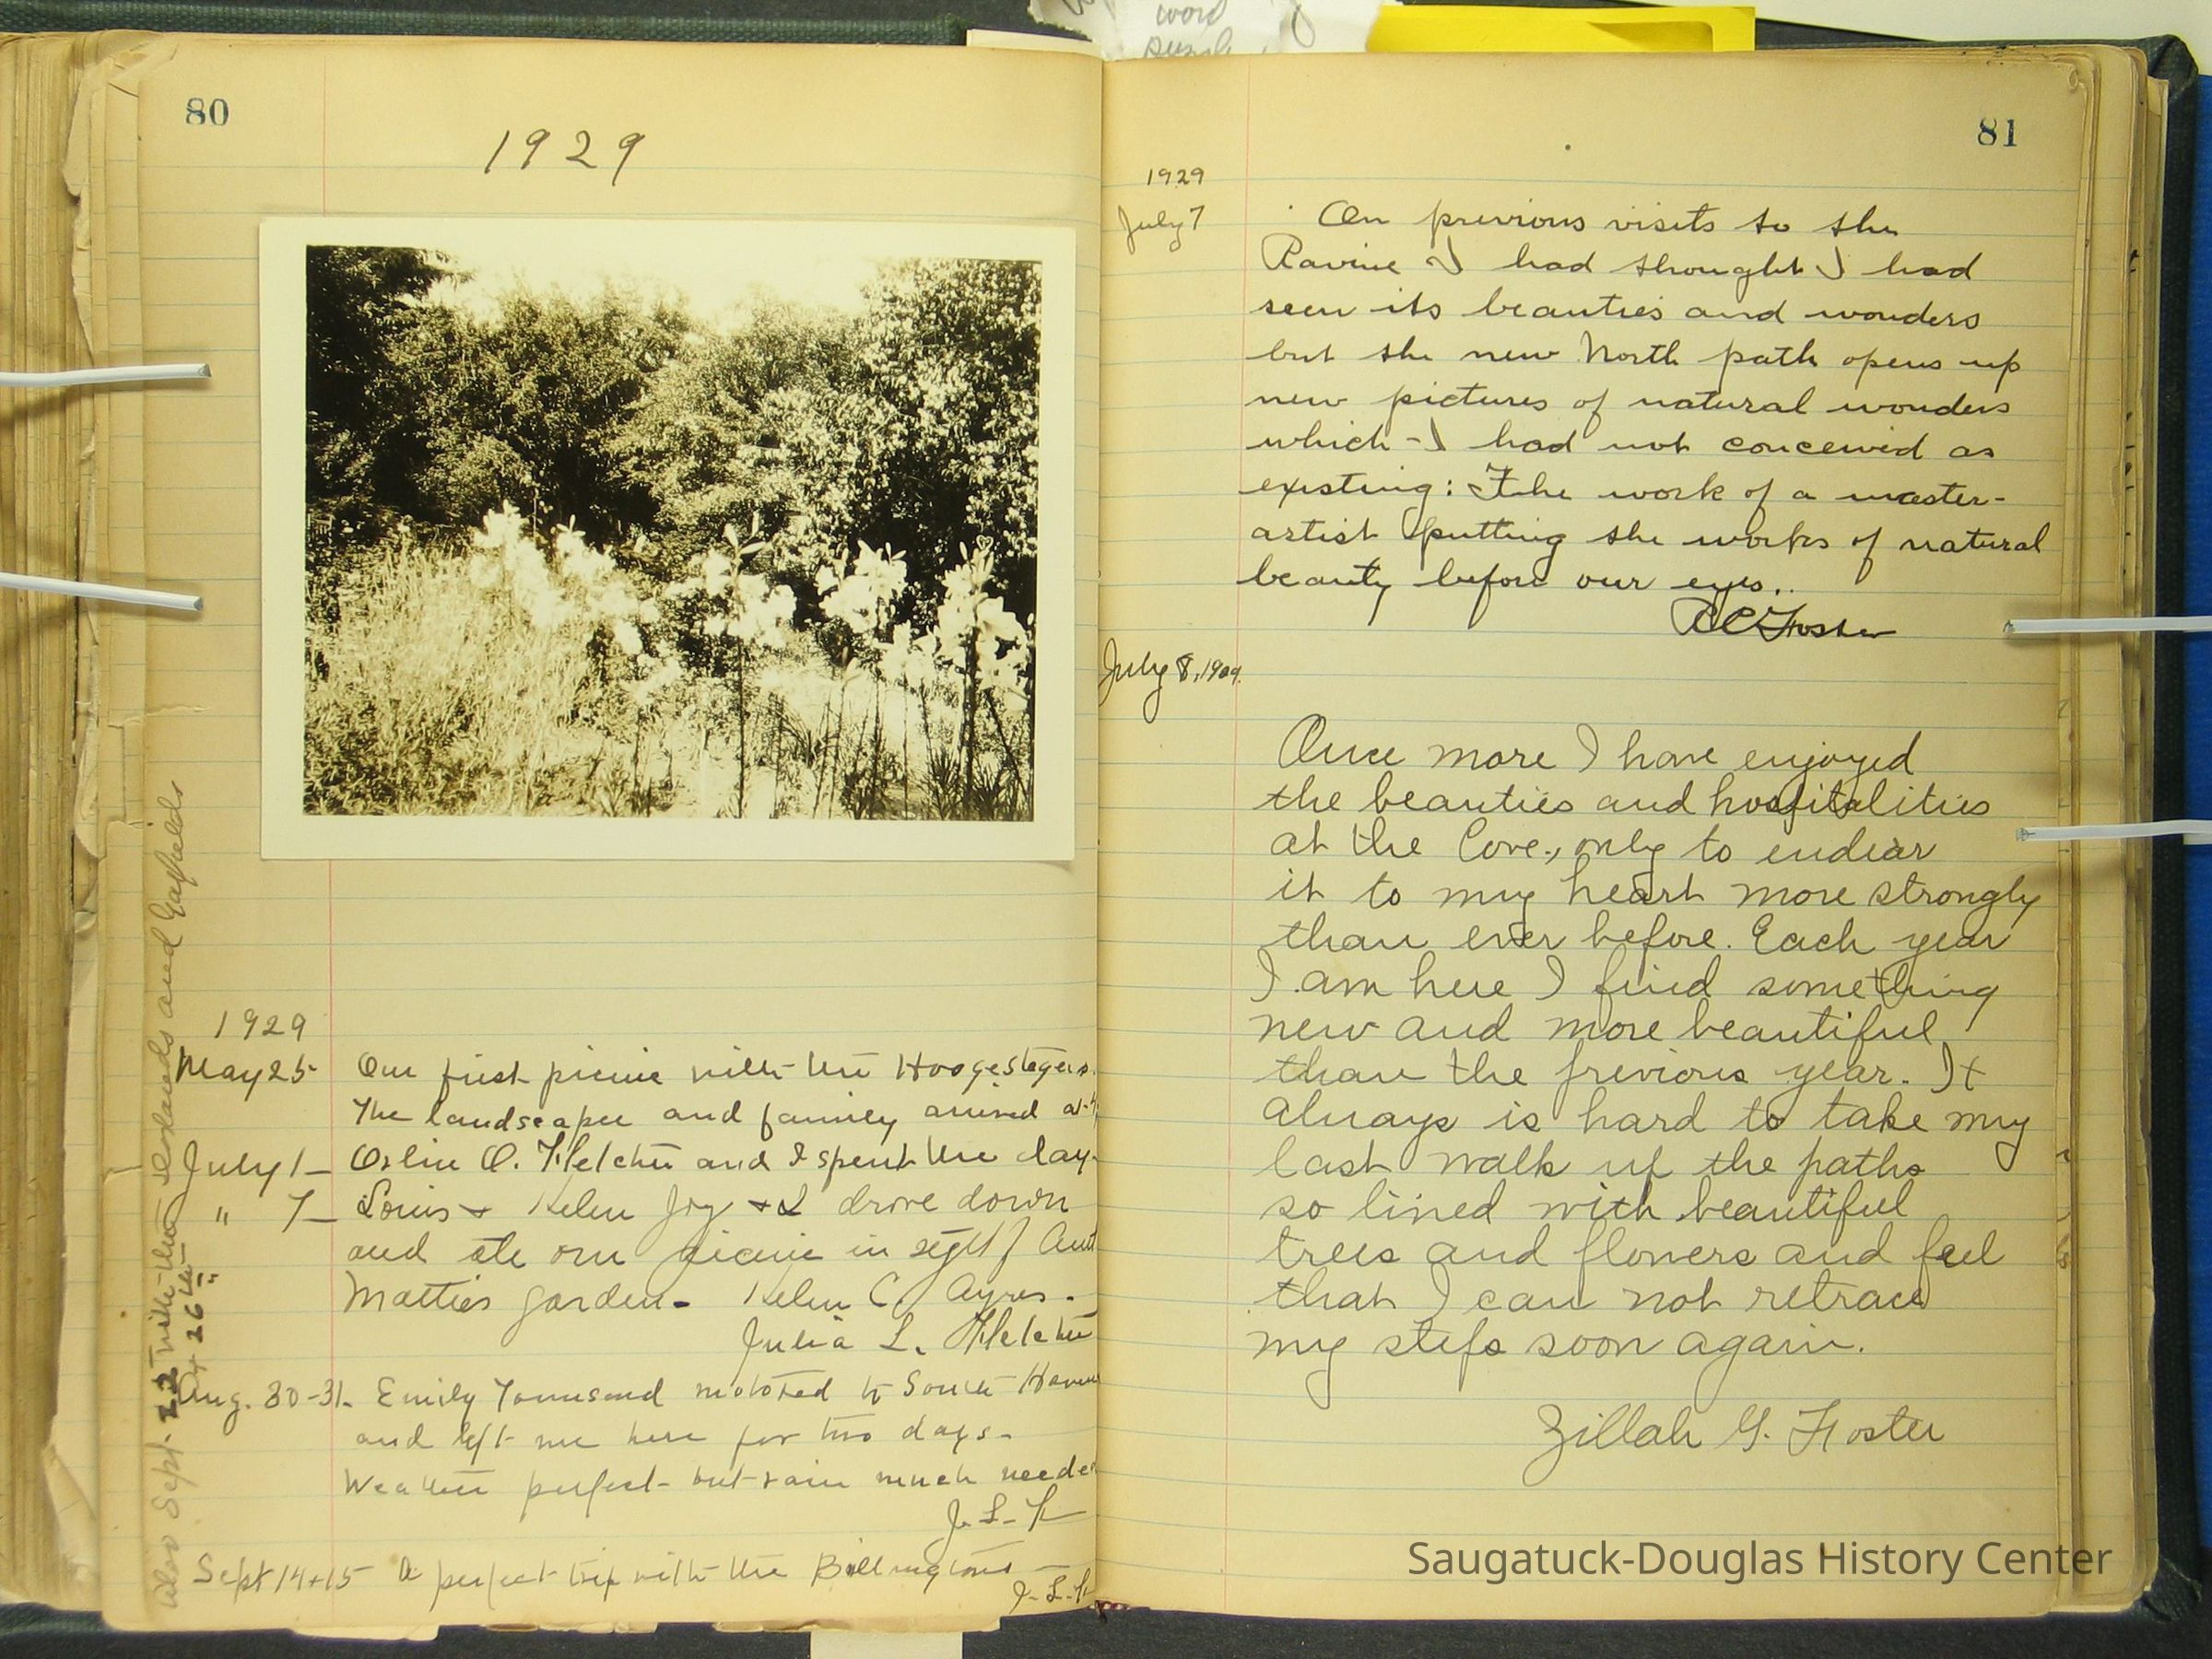 word
80
1929
1929
May 25 Our first picnic with the Hoogestegers.
The landscaper and family arrived at
July 1 — Orlin O. Fletcher and I spent the day.
" 7 — Louis + Helen Joy + I drove down
and ate our picnic in sight of Aunt
Mattie's garden - Helen C. Ayres -
Julia L. Fletcher
Aug. 30-31. Emily Townsend motored to South Haven
and left me here for two days -
Weather perfect - but rain much needed
J. L. F.
Sept 14+15 A perfect trip with the Billingtons —
J. L. F.
Also Sept. 22 with the and Gayfields
26
81
1929
July 7
On previous visits to the
Ravine I had thought I had
seen its beauties and wonders
but the new North path opens up
new pictures of natural wonders
which I had not conceived as
existing: The work of a master-
artist putting the works of natural
beauty before our eyes..
R C Foster
July 8, 1909.
Once more I have enjoyed
the beauties and hospitalities
at the Cove, only to endear
it to my heart more strongly
than ever before. Each year
I am here I find something
new and more beautiful
than the previous year. It
always is hard to take my
last walk up the paths
so lined with beautiful
trees and flowers and feel
that I can not retrace
my steps soon again.
Zillah G. Foster
Saugatuck-Douglas History Center